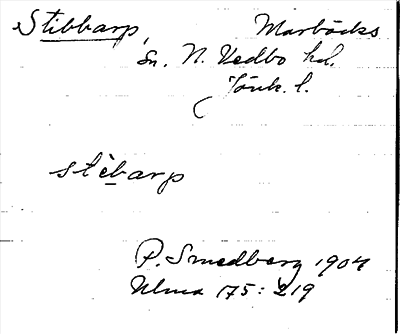 Stibbarp, Marbäcks
sn. N. Vedbo hd.
Jönk. l.
stèbarp
P. Smedberg 1904
Ulma 175:219